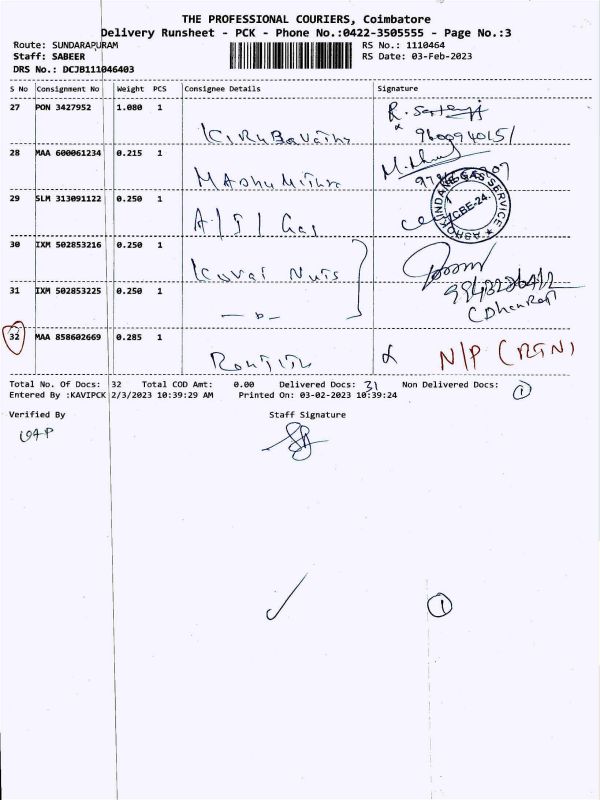 THE PROFESSIONAL COURIERS, Coimbatore
Delivery Runsheet - PCK - Phone No.:0422-3505555 - Page No.:3
Route: SUNDARAPURAM RS No.: 1110464
Staff: SABEER RS Date: 03-Feb-2023
DRS No.: DCJB111046403
S No Consignment No Weight PCS Consignee Details Signature
27 PON 3427952 1.080 1
Kirubavathy 9600940151
28 MAA 600061234 0.215 1
Madhumitha
29 SLM 313091122 0.250 1
A/S/ Gas
CBE-24.
30 IXM 502853216 0.250 1
Kovai Nuts
31 IXM 502853225 0.250 1
32 MAA 858602669 0.285 1
Ranjith N/P (RTN)
Total No. Of Docs: 32 Total COD Amt: 0.00 Delivered Docs: 31 Non Delivered Docs: 1
Entered By :KAVIPCK 2/3/2023 10:39:29 AM Printed On: 03-02-2023 10:39:24
Verified By Staff Signature
1